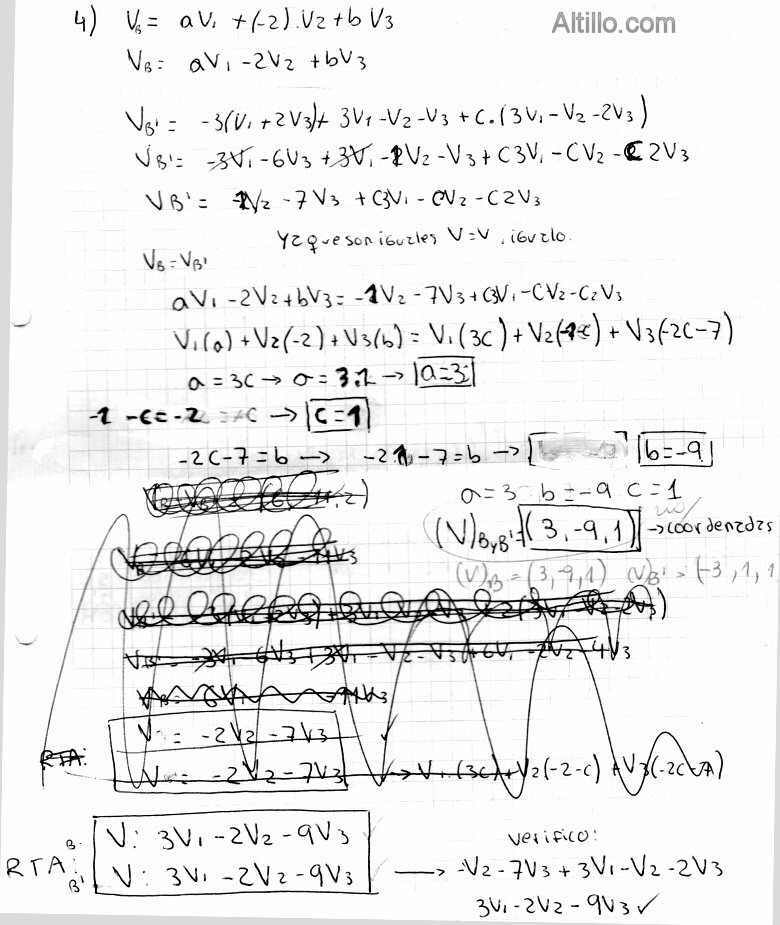 Altillo.com
4) VB = aV1 + (-2).V2 + bV3
VB = aV1 - 2V2 + bV3
VB' = -3(V1 + 2V3) + 3V1 - V2 - V3 + C.(3V1 - V2 - 2V3)
VB' = -3V1 - 6V3 + 3V1 - 1V2 - V3 + C3V1 - CV2 - C2V3
VB' = -1V2 - 7V3 + C3V1 - CV2 - C2V3
Ya que son iguales V=V, igualo.
VB = VB'
aV1 - 2V2 + bV3 = -1V2 - 7V3 + C3V1 - CV2 - C2V3
V1(a) + V2(-2) + V3(b) = V1(3C) + V2(-1-C) + V3(-2C-7)
a = 3C → a = 3.1 → a=3
-1 -C = -2 → C=1
-2C-7=b → -2.1-7=b → b=-9
a=3 b=-9 C=1
(V)ByB' = (3,-9,1) → coordenadas
(V)B = (3,-9,1) (V)B' = (-3,1,1
V = -2V2 - 7V3
V = -2V2 - 7V3 → V1(3C)+V2(-2-C)+V3(-2C-7)
RTA:
B: V: 3V1 - 2V2 - 9V3
RTA:
B': V: 3V1 - 2V2 - 9V3
verifico:
→ -V2 - 7V3 + 3V1 - V2 - 2V3
3V1 - 2V2 - 9V3 ✓